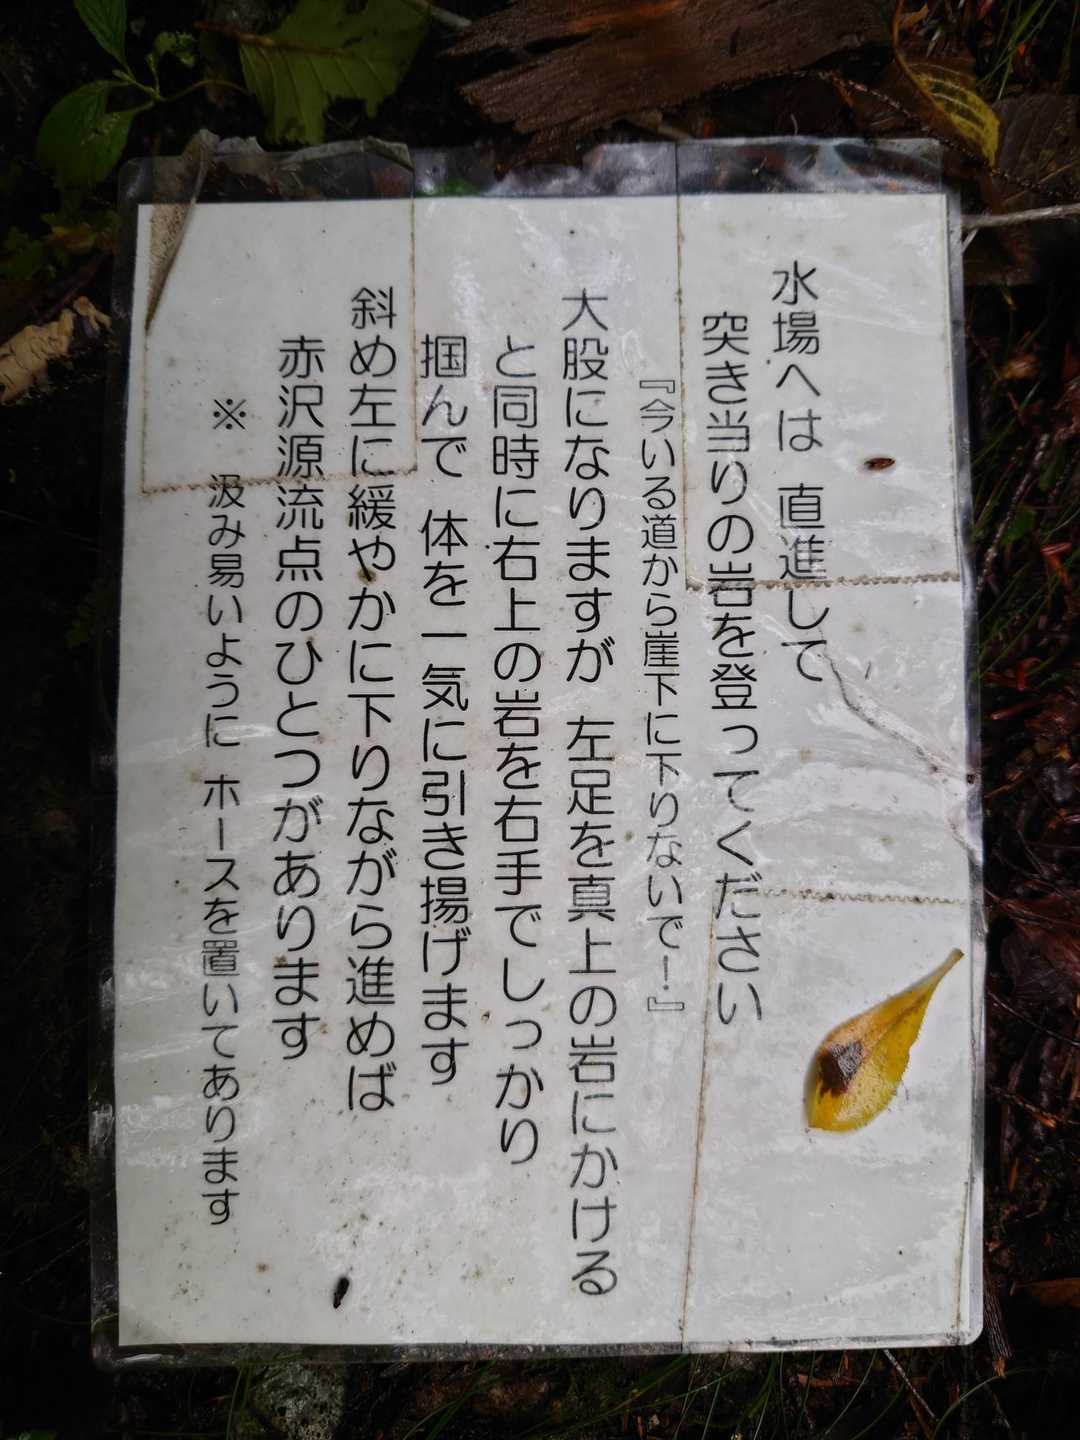 水場へは 直進して
突き当りの岩を登ってください
『今いる道から崖下に下りないで！』
大股になりますが 左足を真上の岩にかける
と同時に右上の岩を右手でしっかり
掴んで 体を一気に引き揚げます
斜め左に緩やかに下りながら進めば
赤沢源流点のひとつがあります
※ 汲み易いように ホースを置いてあります